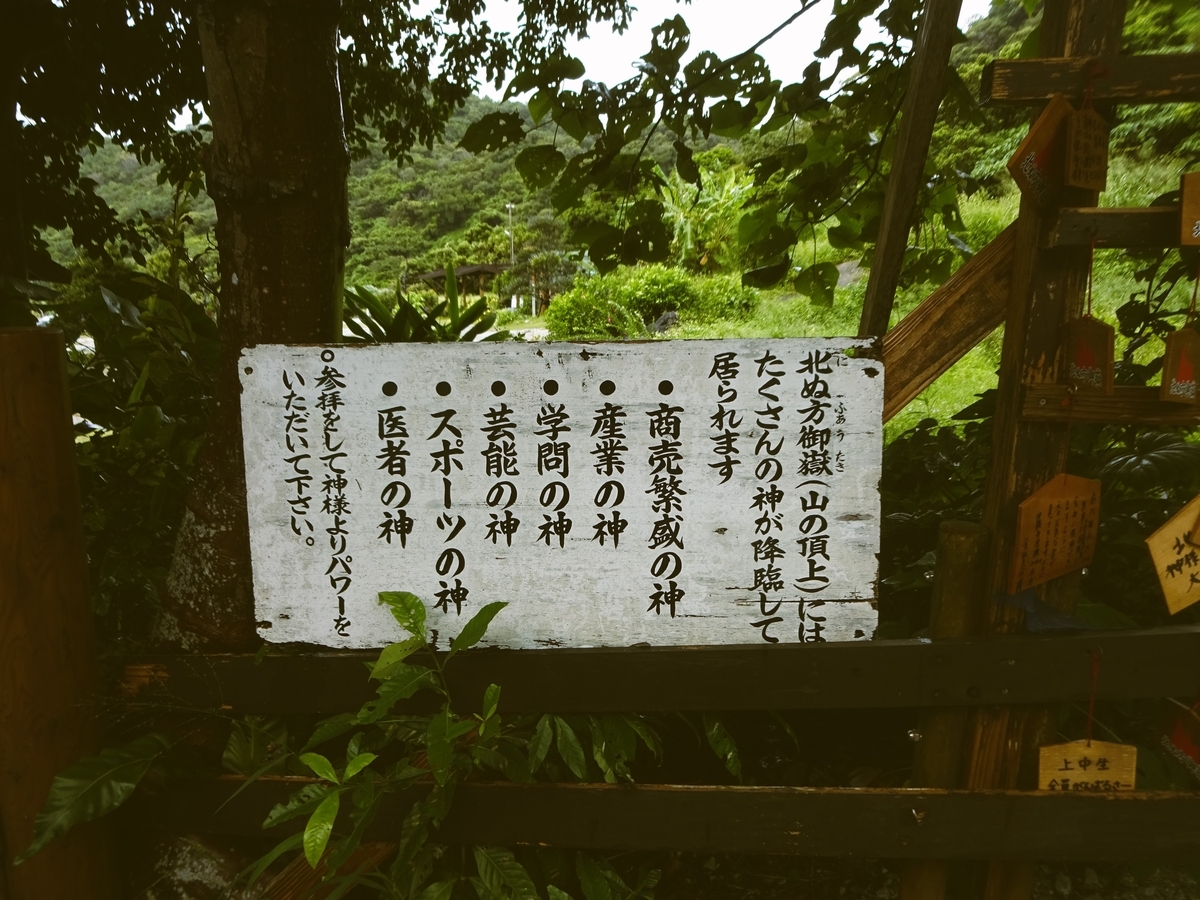 北ぬ方御嶽（山の頂上）には
に ふあう たき
たくさんの神が降臨して
居られます
●商売繁盛の神
●産業の神
●学問の神
●芸能の神
●スポーツの神
●医者の神
○参拝をして神様よりパワーを
いただいて下さい。
上中生